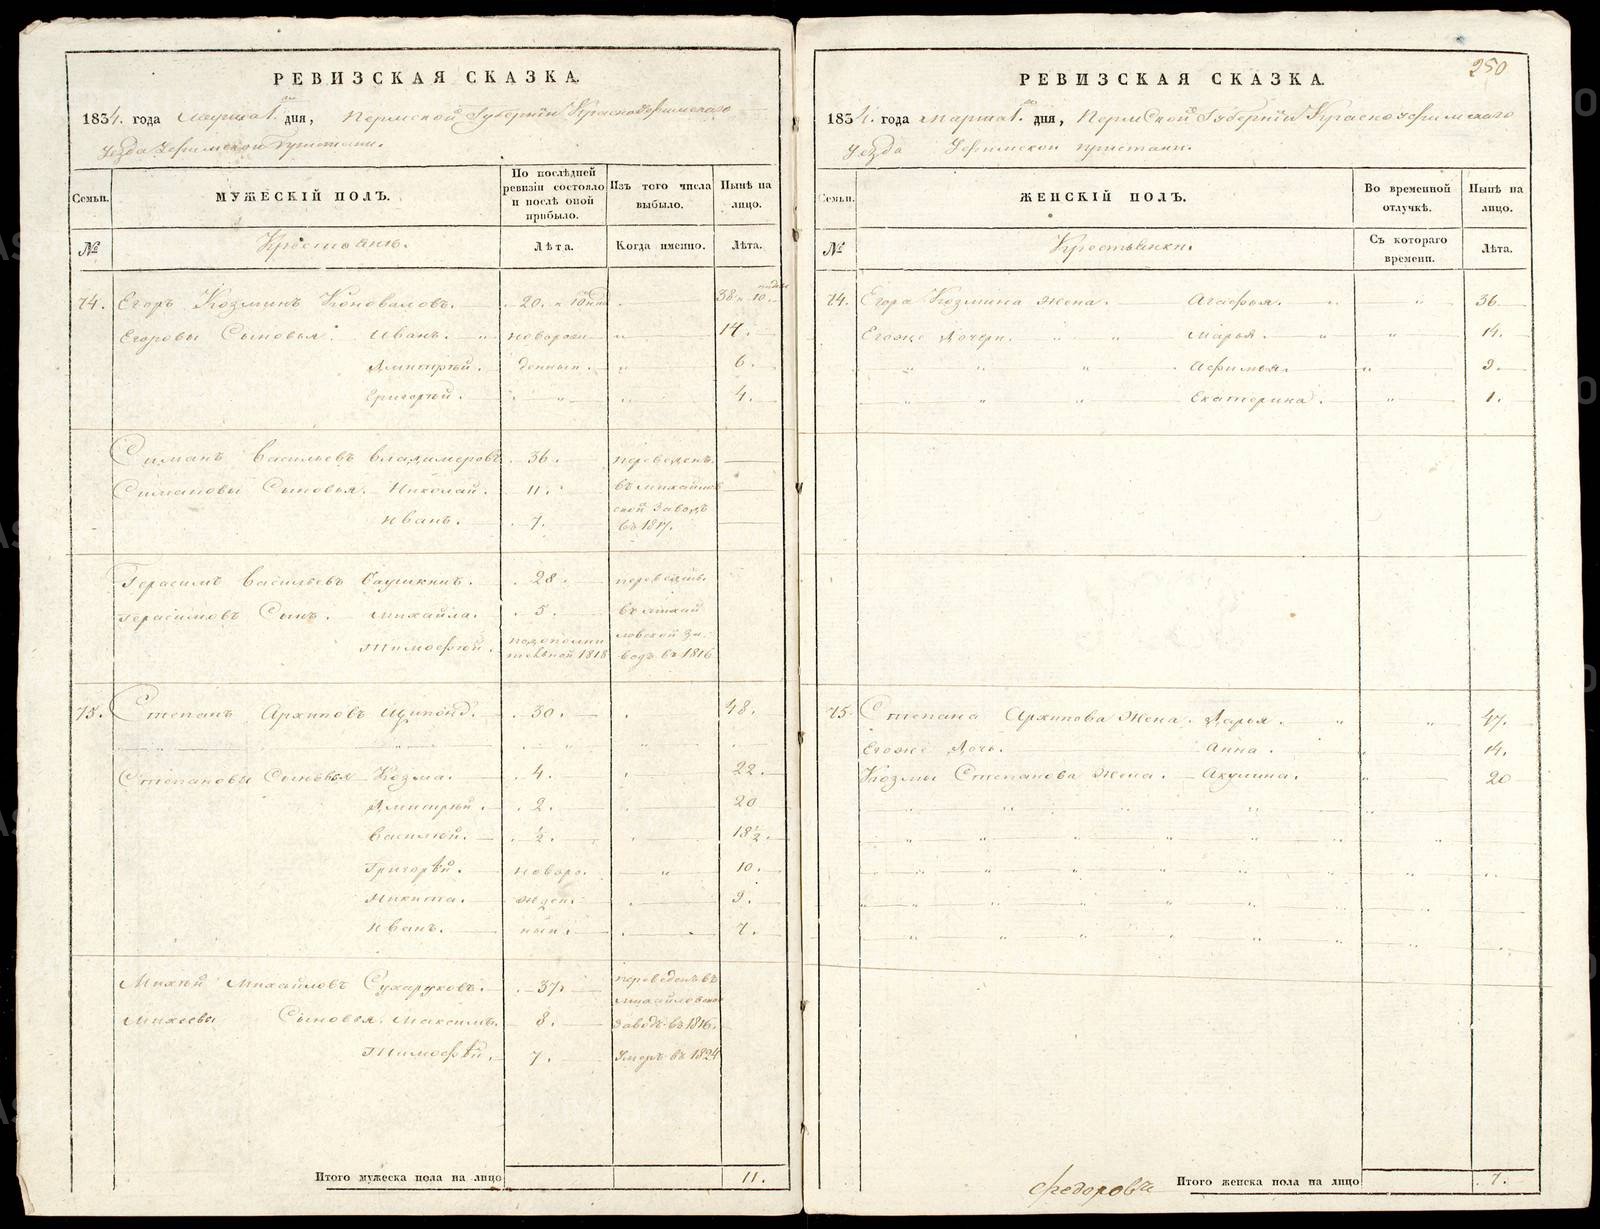 РЕВИЗСКАЯ СКАЗКА.
1834. года Марта 1. дня, Пермской Губернїи Красноуфимскаго
Уезда Уфимской Пристани.
Семьи.
МУЖЕСКІЙ ПОЛЪ.
По послѣдней ревизіи состояло и послѣ оной прибыло.
Изъ того числа выбыло.
Нынѣ на лицо.
№
Крестьяне.
Лѣта.
Когда именно.
Лѣта.
74. Егоръ Козминъ Коноваловъ. 20. 38
Егоровы Сыновья: Иванъ. новорож 14.
Дмитрей. денныи. 6.
Григорей. 4.
Симанъ Васильевъ Владимеровъ 36. переведенъ.
Симановы Сыновья. Николай. 11. въ Михайлов
Иванъ. 7. ской заводъ въ 1817.
Герасимъ Васильевъ 28. переведены
Герасимовъ Сынъ. Михайла. 5. въ Михай
Тимофей. по дополни тельной 1818 ловской за- водъ въ 1816
75. Степанъ Архиповъ 30. 48.
Степановы Сыновья Козма. 4. 22.
Дмитрей. 2. 20
Василей. ½. 18½.
Григорей. новоро. 10.
Никита. жден 9.
Иванъ. ныи. 7.
Михей Михайловъ Сухаруковъ. 37. переведенъ въ
Михеевы Сыновья. Максимъ. 8. Михайловской заводъ въ 1816.
Тимофей. 7. Умеръ въ 1824
Итого мужеска пола на лицо 11.
250
РЕВИЗСКАЯ СКАЗКА.
1834. года Марта 1. дня, Пермской Губернїи Красноуфимскаго
Уезда Уфимской пристани.
Семьи.
ЖЕНСКІЙ ПОЛЪ.
Во временной отлучкѣ.
Нынѣ на лицо.
№
Крестьянки.
Съ котораго времени.
Лѣта.
74. Егора Козмина жена. Агафья. 36.
Егоже Дочери. Марья. 14.
Афимья. 9.
Екатерина. 1.
75. Степана Архипова Жена. Дарья. 47.
Егоже Дочь. Анна. 14.
Козмы Степанова жена. Акулина. 20
Федоровъ
Итого женска пола на лицо 7.